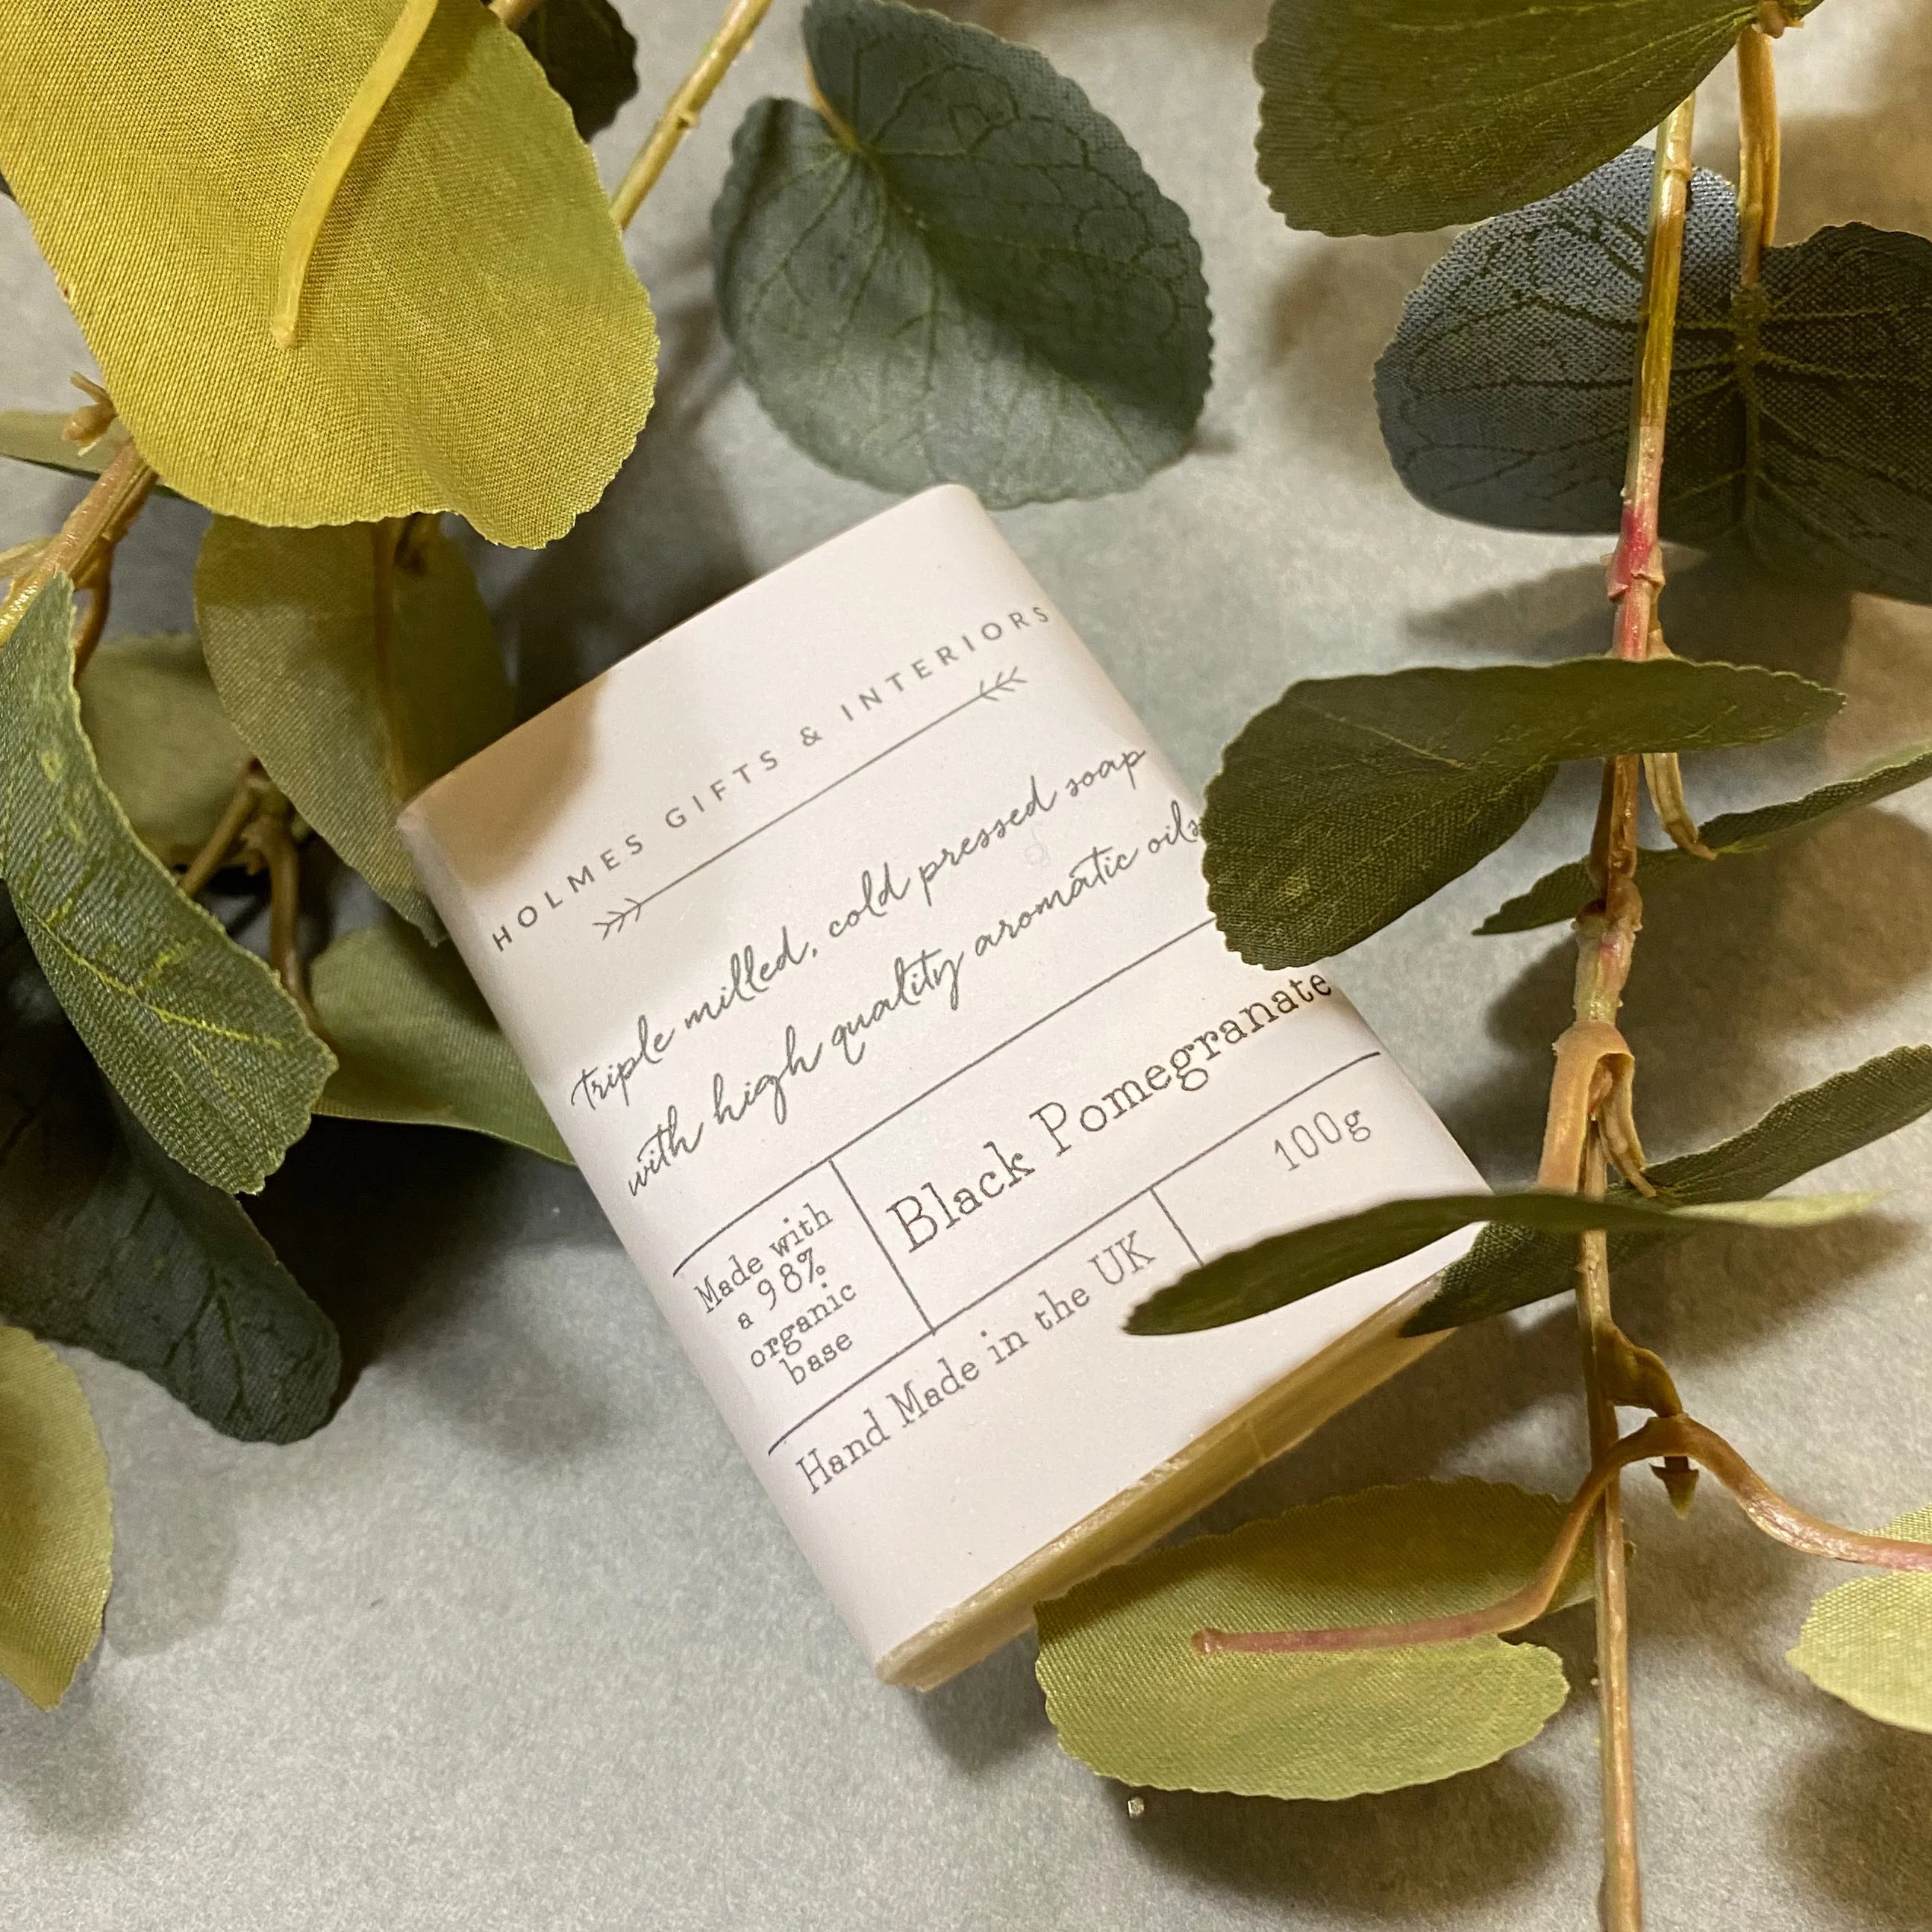 HOLMES GIFTS & INTERIORS
Triple milled, cold pressed soap
with high quality aromatic oils
Made with
a 98%
organic
base
Black Pomegranate
Hand Made in the UK
100g